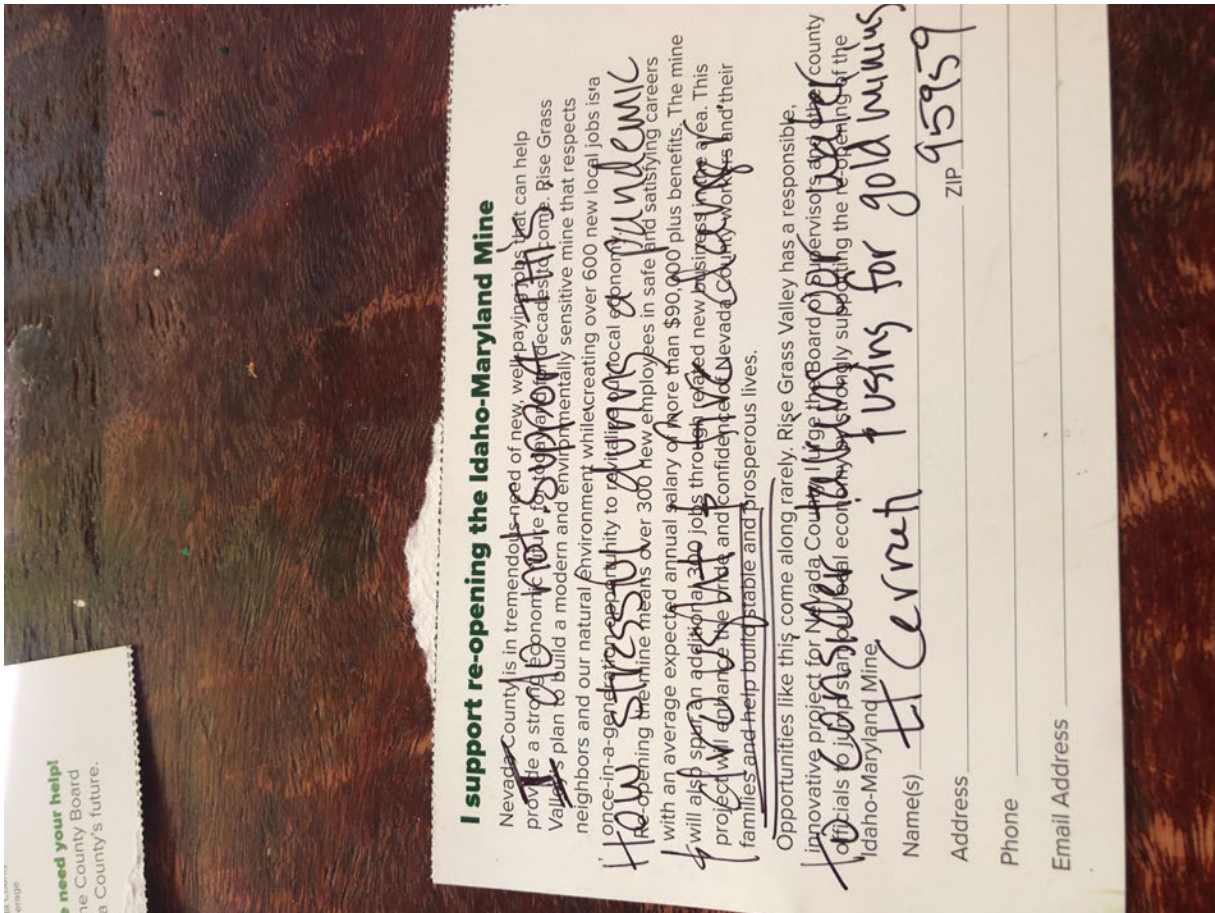 erage
need your help!
ne County Board
a County's future.
I support re-opening the Idaho-Maryland Mine
Nevada County is in tremendous need of new, well-paying jobs that can help
provide a strong economic future for today and for decades to come. Rise Grass
Valley's plan to build a modern and environmentally sensitive mine that respects
neighbors and our natural environment while creating over 600 new local jobs is a
once-in-a-generation opportunity to revitalize our local economy.
Re-opening the mine means over 300 new employees in safe and satisfying careers
with an average expected annual salary of more than $90,000 plus benefits. The mine
will also spur an additional 300 jobs through related new business in the area. This
project will enhance the pride and confidence of Nevada County workers and their
families and help build stable and prosperous lives.
Opportunities like this come along rarely. Rise Grass Valley has a responsible,
innovative project for Nevada County. I urge the Board of Supervisors and other county
officials to jumpstart our local economy by strongly supporting the re-opening of the
Idaho-Maryland Mine.
I do not support this
How stressful during a pandemic
& drought & fire danger
to consider taking our water
& using for gold mining
Name(s)
Address
ZIP 95959
Phone
Email Address